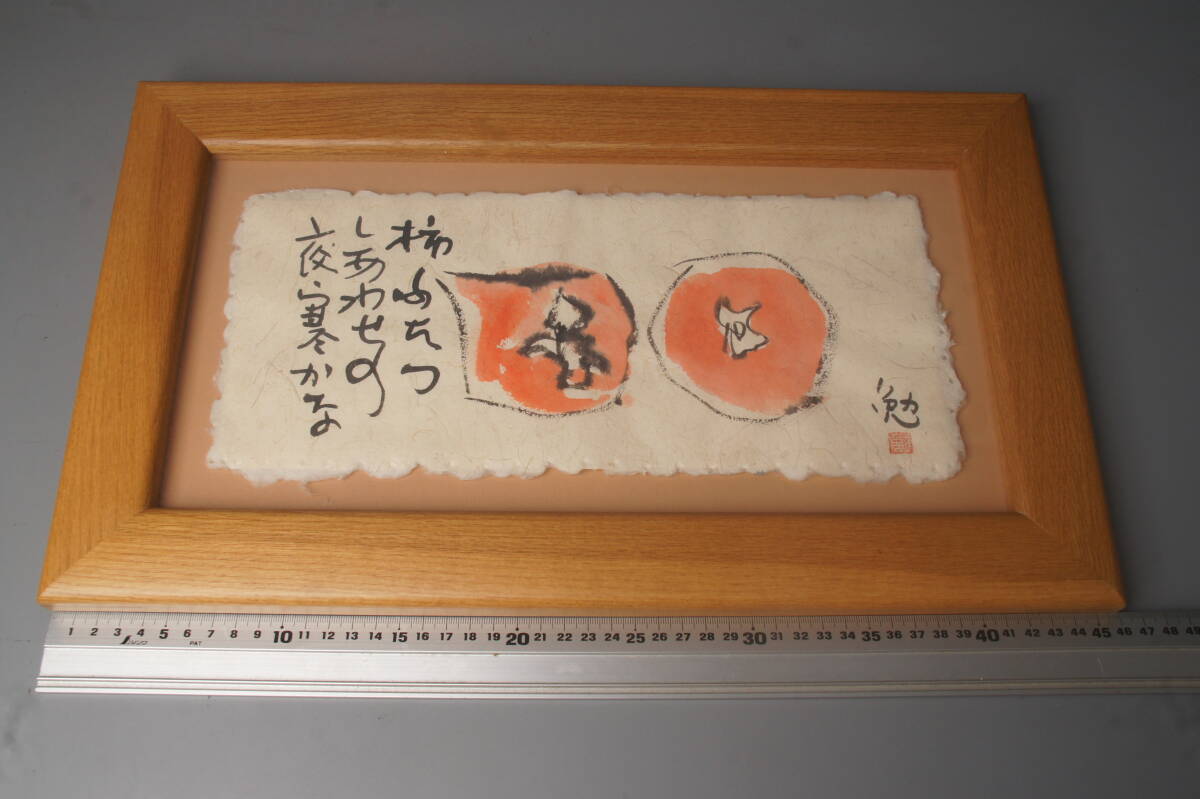 柿ふたつ
しあわせの
夜寒かな
勉
1 2 3 4 5 6 7 8 9 10 11 12 13 14 15 16 17 18 19 20 21 22 23 24 25 26 27 28 29 30 31 32 33 34 35 36 37 38 39 40 41 42 43 44 45 46 47 48 49
シンワ PAT